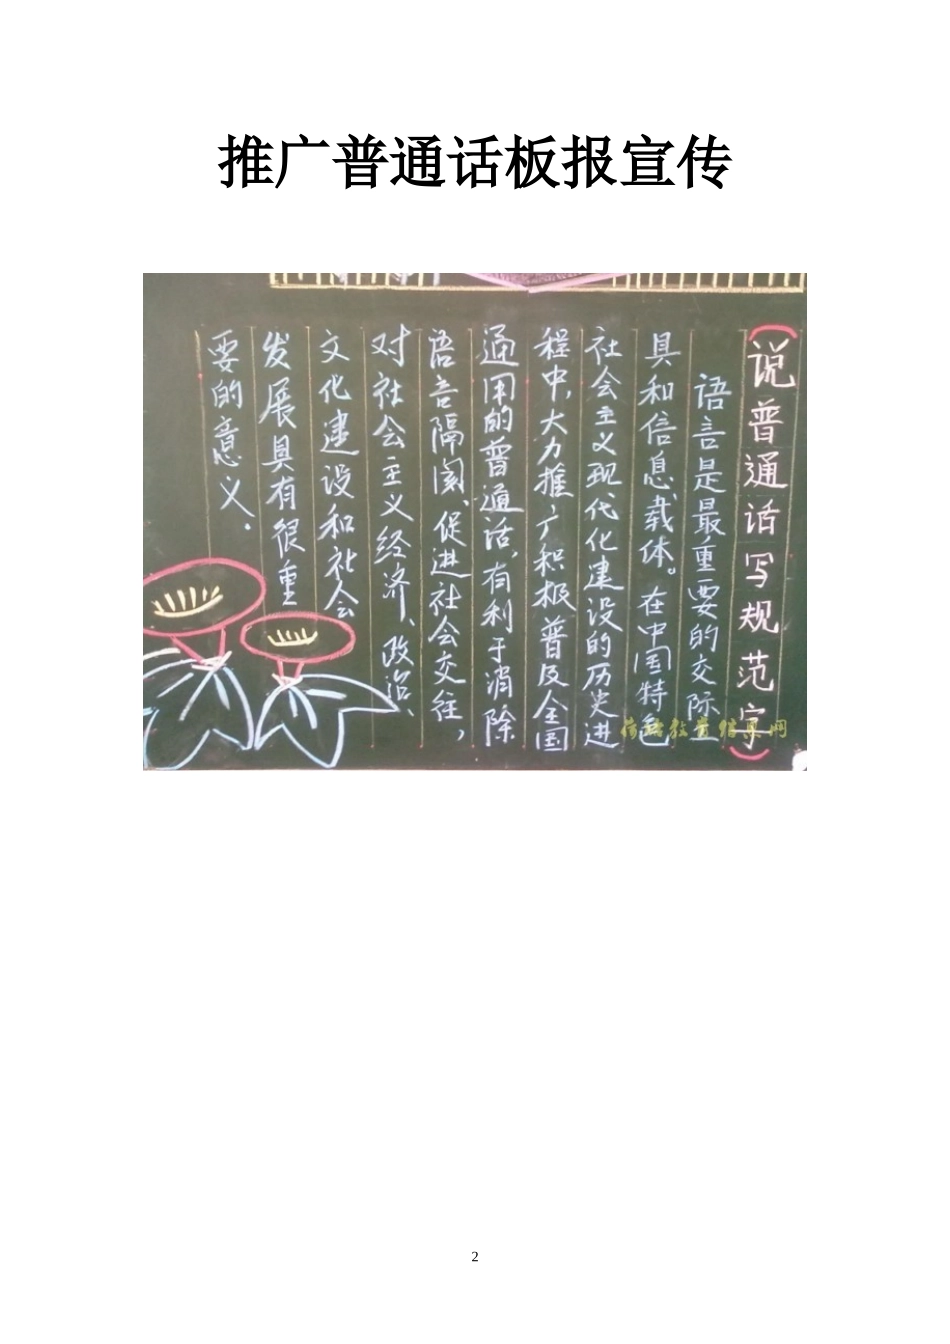 推广普通话板报宣传
说普通话写规范字
语言是最重要的交际工
具和信息载体。在中国特色
社会主义现代化建设的历史进
程中,大力推广积极普及全国
通用的普通话,有利于消除
语言隔阂、促进社会交往,
对社会主义经济、政治、
文化建设和社会
发展具有很重
要的意义。
2